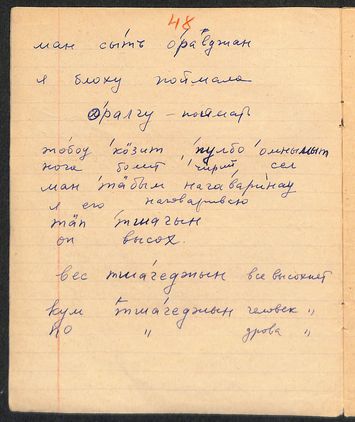 48
ман сы́тъ о́ра̄вджан
я блоху поймала
о́ралгу – поймать
то́боу ко́зит пулбо о́мнымыт
нога болит чирий сел
ман та̄бым нагаварина̄у
я его наговариваю
тӓп тшачын
он высох.
вес тша́чеджын все высохнет
кум тша́чеджын человек "
по " дрова "